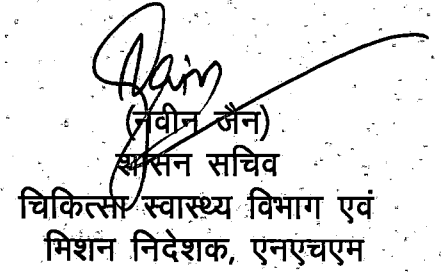 Jain
(नवीन जैन)
शासन सचिव
चिकित्सा स्वास्थ्य विभाग एवं
मिशन निदेशक, एनएचएम